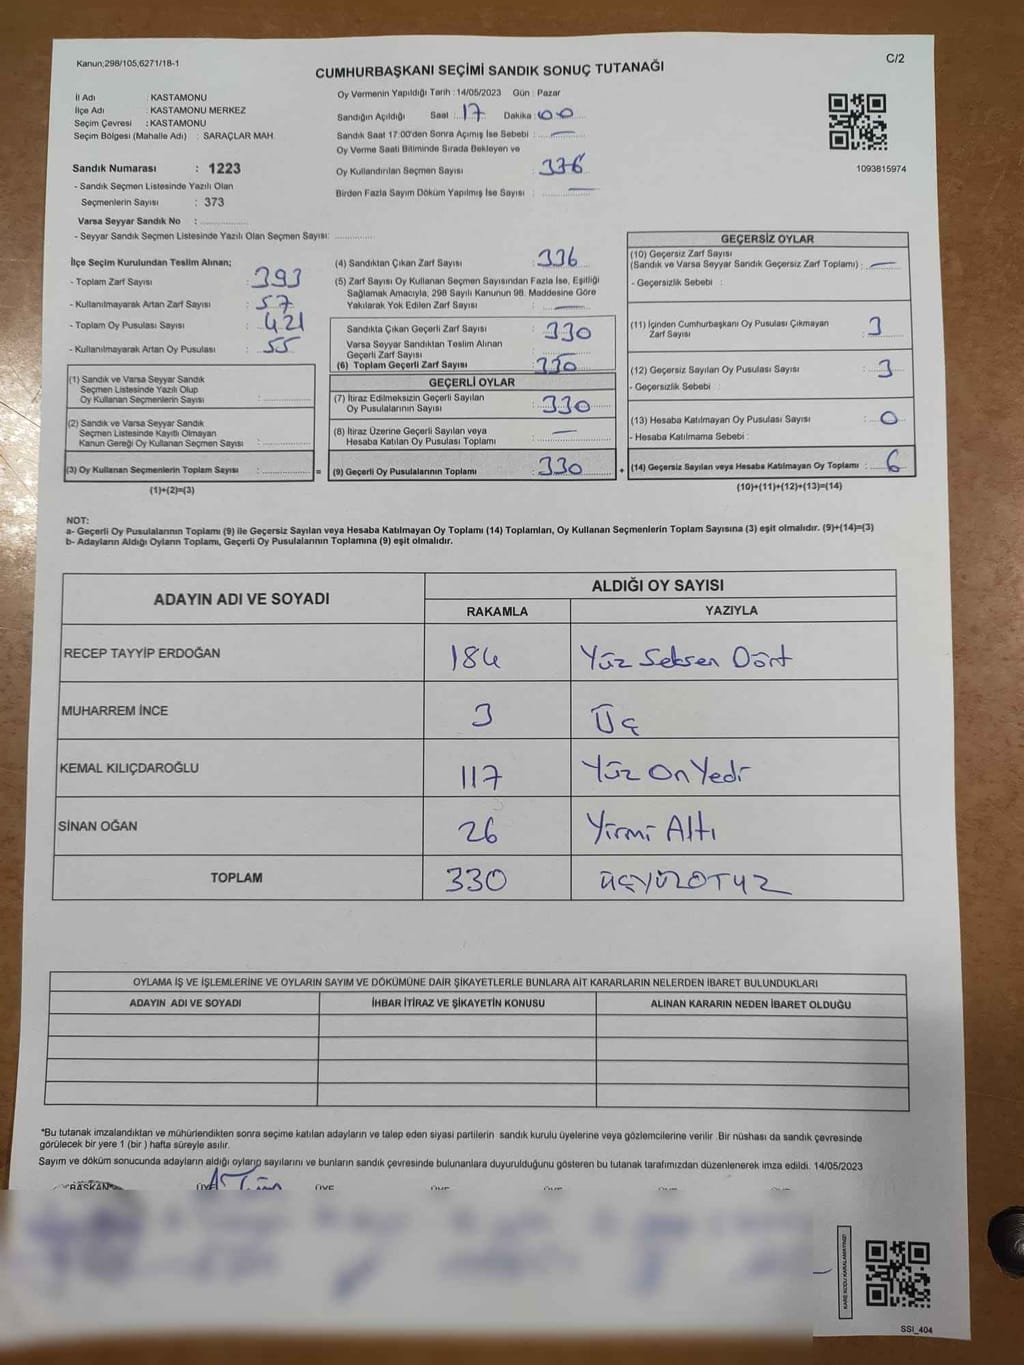 Kanun;298/105,6271/18-1
C/2
CUMHURBAŞKANI SEÇİMİ SANDIK SONUÇ TUTANAĞI
İl Adı : KASTAMONU
İlçe Adı : KASTAMONU MERKEZ
Seçim Çevresi : KASTAMONU
Seçim Bölgesi (Mahalle Adı) : SARAÇLAR MAH.
Sandık Numarası : 1223
- Sandık Seçmen Listesinde Yazılı Olan
Seçmenlerin Sayısı : 373
Varsa Seyyar Sandık No :
- Seyyar Sandık Seçmen Listesinde Yazılı Olan Seçmen Sayısı:
Oy Vermenin Yapıldığı Tarih :14/05/2023 Gün : Pazar
Sandığın Açıldığı Saat : 17 Dakika : 00
Sandık Saat 17:00'den Sonra Açılmış İse Sebebi : —
Oy Verme Saati Bitiminde Sırada Bekleyen ve
Oy Kullandırılan Seçmen Sayısı : 336
Birden Fazla Sayım Döküm Yapılmış İse Sayısı : —
1093815974
İlçe Seçim Kurulundan Teslim Alınan;
- Toplam Zarf Sayısı : 393
- Kullanılmayarak Artan Zarf Sayısı : 57
- Toplam Oy Pusulası Sayısı : 421
- Kullanılmayarak Artan Oy Pusulası : 55
(1) Sandık ve Varsa Seyyar Sandık
Seçmen Listesinde Yazılı Olup
Oy Kullanan Seçmenlerin Sayısı :
(2) Sandık ve Varsa Seyyar Sandık
Seçmen Listesinde Kayıtlı Olmayan
Kanun Gereği Oy Kullanan Seçmen Sayısı :
(3) Oy Kullanan Seçmenlerin Toplam Sayısı : =
(1)+(2)=(3)
(4) Sandıktan Çıkan Zarf Sayısı : 336
(5) Zarf Sayısı Oy Kullanan Seçmen Sayısından Fazla İse, Eşitliği
Sağlamak Amacıyla, 298 Sayılı Kanunun 98. Maddesine Göre
Yakılarak Yok Edilen Zarf Sayısı : —
Sandıkta Çıkan Geçerli Zarf Sayısı : 330
Varsa Seyyar Sandıktan Teslim Alınan
Geçerli Zarf Sayısı :
(6) Toplam Geçerli Zarf Sayısı : 330
GEÇERLİ OYLAR
(7) İtiraz Edilmeksizin Geçerli Sayılan
Oy Pusulalarının Sayısı : 330
(8) İtiraz Üzerine Geçerli Sayılan veya
Hesaba Katılan Oy Pusulası Toplamı : —
(9) Geçerli Oy Pusulalarının Toplamı : 330 +
GEÇERSİZ OYLAR
(10) Geçersiz Zarf Sayısı
(Sandık ve Varsa Seyyar Sandık Geçersiz Zarf Toplamı) : —
- Geçersizlik Sebebi :
(11) İçinden Cumhurbaşkanı Oy Pusulası Çıkmayan
Zarf Sayısı : 3
(12) Geçersiz Sayılan Oy Pusulası Sayısı : 3
- Geçersizlik Sebebi :
(13) Hesaba Katılmayan Oy Pusulası Sayısı : 0
- Hesaba Katılmama Sebebi :
(14) Geçersiz Sayılan veya Hesaba Katılmayan Oy Toplamı : 6
(10)+(11)+(12)+(13)=(14)
NOT:
a- Geçerli Oy Pusulalarının Toplamı (9) ile Geçersiz Sayılan veya Hesaba Katılmayan Oy Toplamı (14) Toplamları, Oy Kullanan Seçmenlerin Toplam Sayısına (3) eşit olmalıdır. (9)+(14)=(3)
b- Adayların Aldığı Oyların Toplamı, Geçerli Oy Pusulalarının Toplamına (9) eşit olmalıdır.
ADAYIN ADI VE SOYADI
ALDIĞI OY SAYISI
RAKAMLA YAZIYLA
RECEP TAYYİP ERDOĞAN 184 Yüz Seksen Dört
MUHARREM İNCE 3 Üç
KEMAL KILIÇDAROĞLU 117 Yüz On Yedi
SİNAN OĞAN 26 Yirmi Altı
TOPLAM 330 ÜÇYÜZOTUZ
OYLAMA İŞ VE İŞLEMLERİNE VE OYLARIN SAYIM VE DÖKÜMÜNE DAİR ŞİKAYETLERLE BUNLARA AİT KARARLARIN NELERDEN İBARET BULUNDUKLARI
ADAYIN ADI VE SOYADI İHBAR İTİRAZ VE ŞİKAYETİN KONUSU ALINAN KARARIN NEDEN İBARET OLDUĞU
*Bu tutanak imzalandıktan ve mühürlendikten sonra seçime katılan adayların ve talep eden siyasi partilerin sandık kurulu üyelerine veya gözlemcilerine verilir .Bir nüshası da sandık çevresinde
görülecek bir yere 1 (bir ) hafta süreyle asılır.
Sayım ve döküm sonucunda adayların aldığı oyların sayılarını ve bunların sandık çevresinde bulunanlara duyurulduğunu gösteren bu tutanak tarafımızdan düzenlenerek imza edildi. 14/05/2023
BAŞKAN ÜYE ÜYE ÜYE ÜYE ÜYE ÜYE
KARE KODU KARALAMAYINIZ!
SSI_404